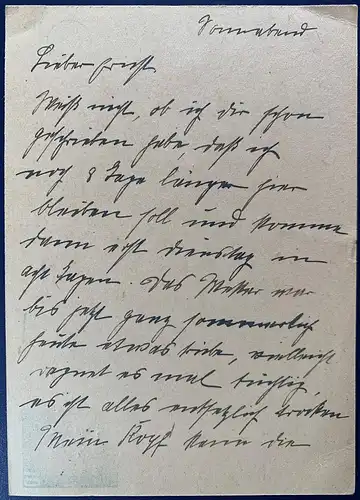 Sonnabend
Lieber Ernst.
Weiß nicht, ob ich dir schon
geschrieben habe, daß ich
noch 8 Tage länger hier
bleiben soll und komme
dann erst Dienstag in
acht Tagen. Das Wetter war
bis jetzt ganz sommerlich
heute etwas trübe, vielleicht
regnet es mal tüchtig,
es ist alles entsetzlich trocken
Mein Kopf kann die